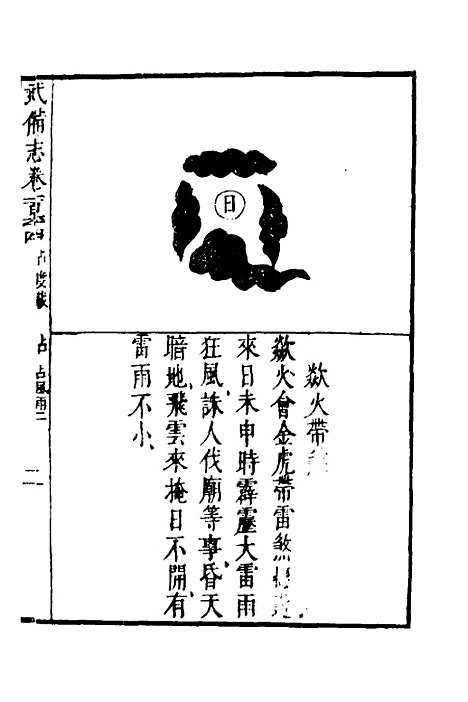 日
歘火帶
歘火會金虎帶雷煞
來日未申時霹靂大雷雨
狂風、誅人伐廟等事、昏天
暗地、飛雲來掩日不開、有
雷雨不小、
武備志卷
占度載
占
占風雨一
二